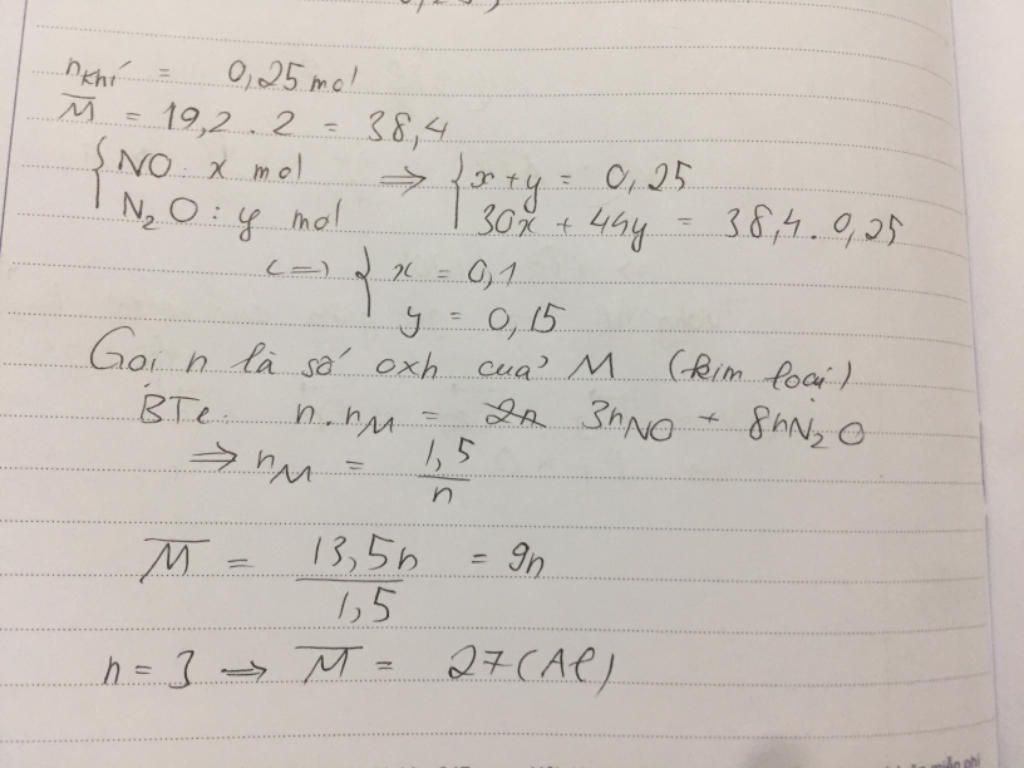 n_khí = 0,25 mol
M̅ = 19,2 . 2 = 38,4
{ NO : x mol ⇒ { x + y = 0,25
N₂O : y mol 30x + 44y = 38,4 . 0,25
<=> { x = 0,1
y = 0,15
Gọi n là số oxh của M (kim loại)
BTe: n.n_M = 3n_NO + 8n_N₂O
⇒ n_M = 1,5/n
M̅ = 13,5n/1,5 = 9n
n = 3 ⇒ M̅ = 27 (Al)